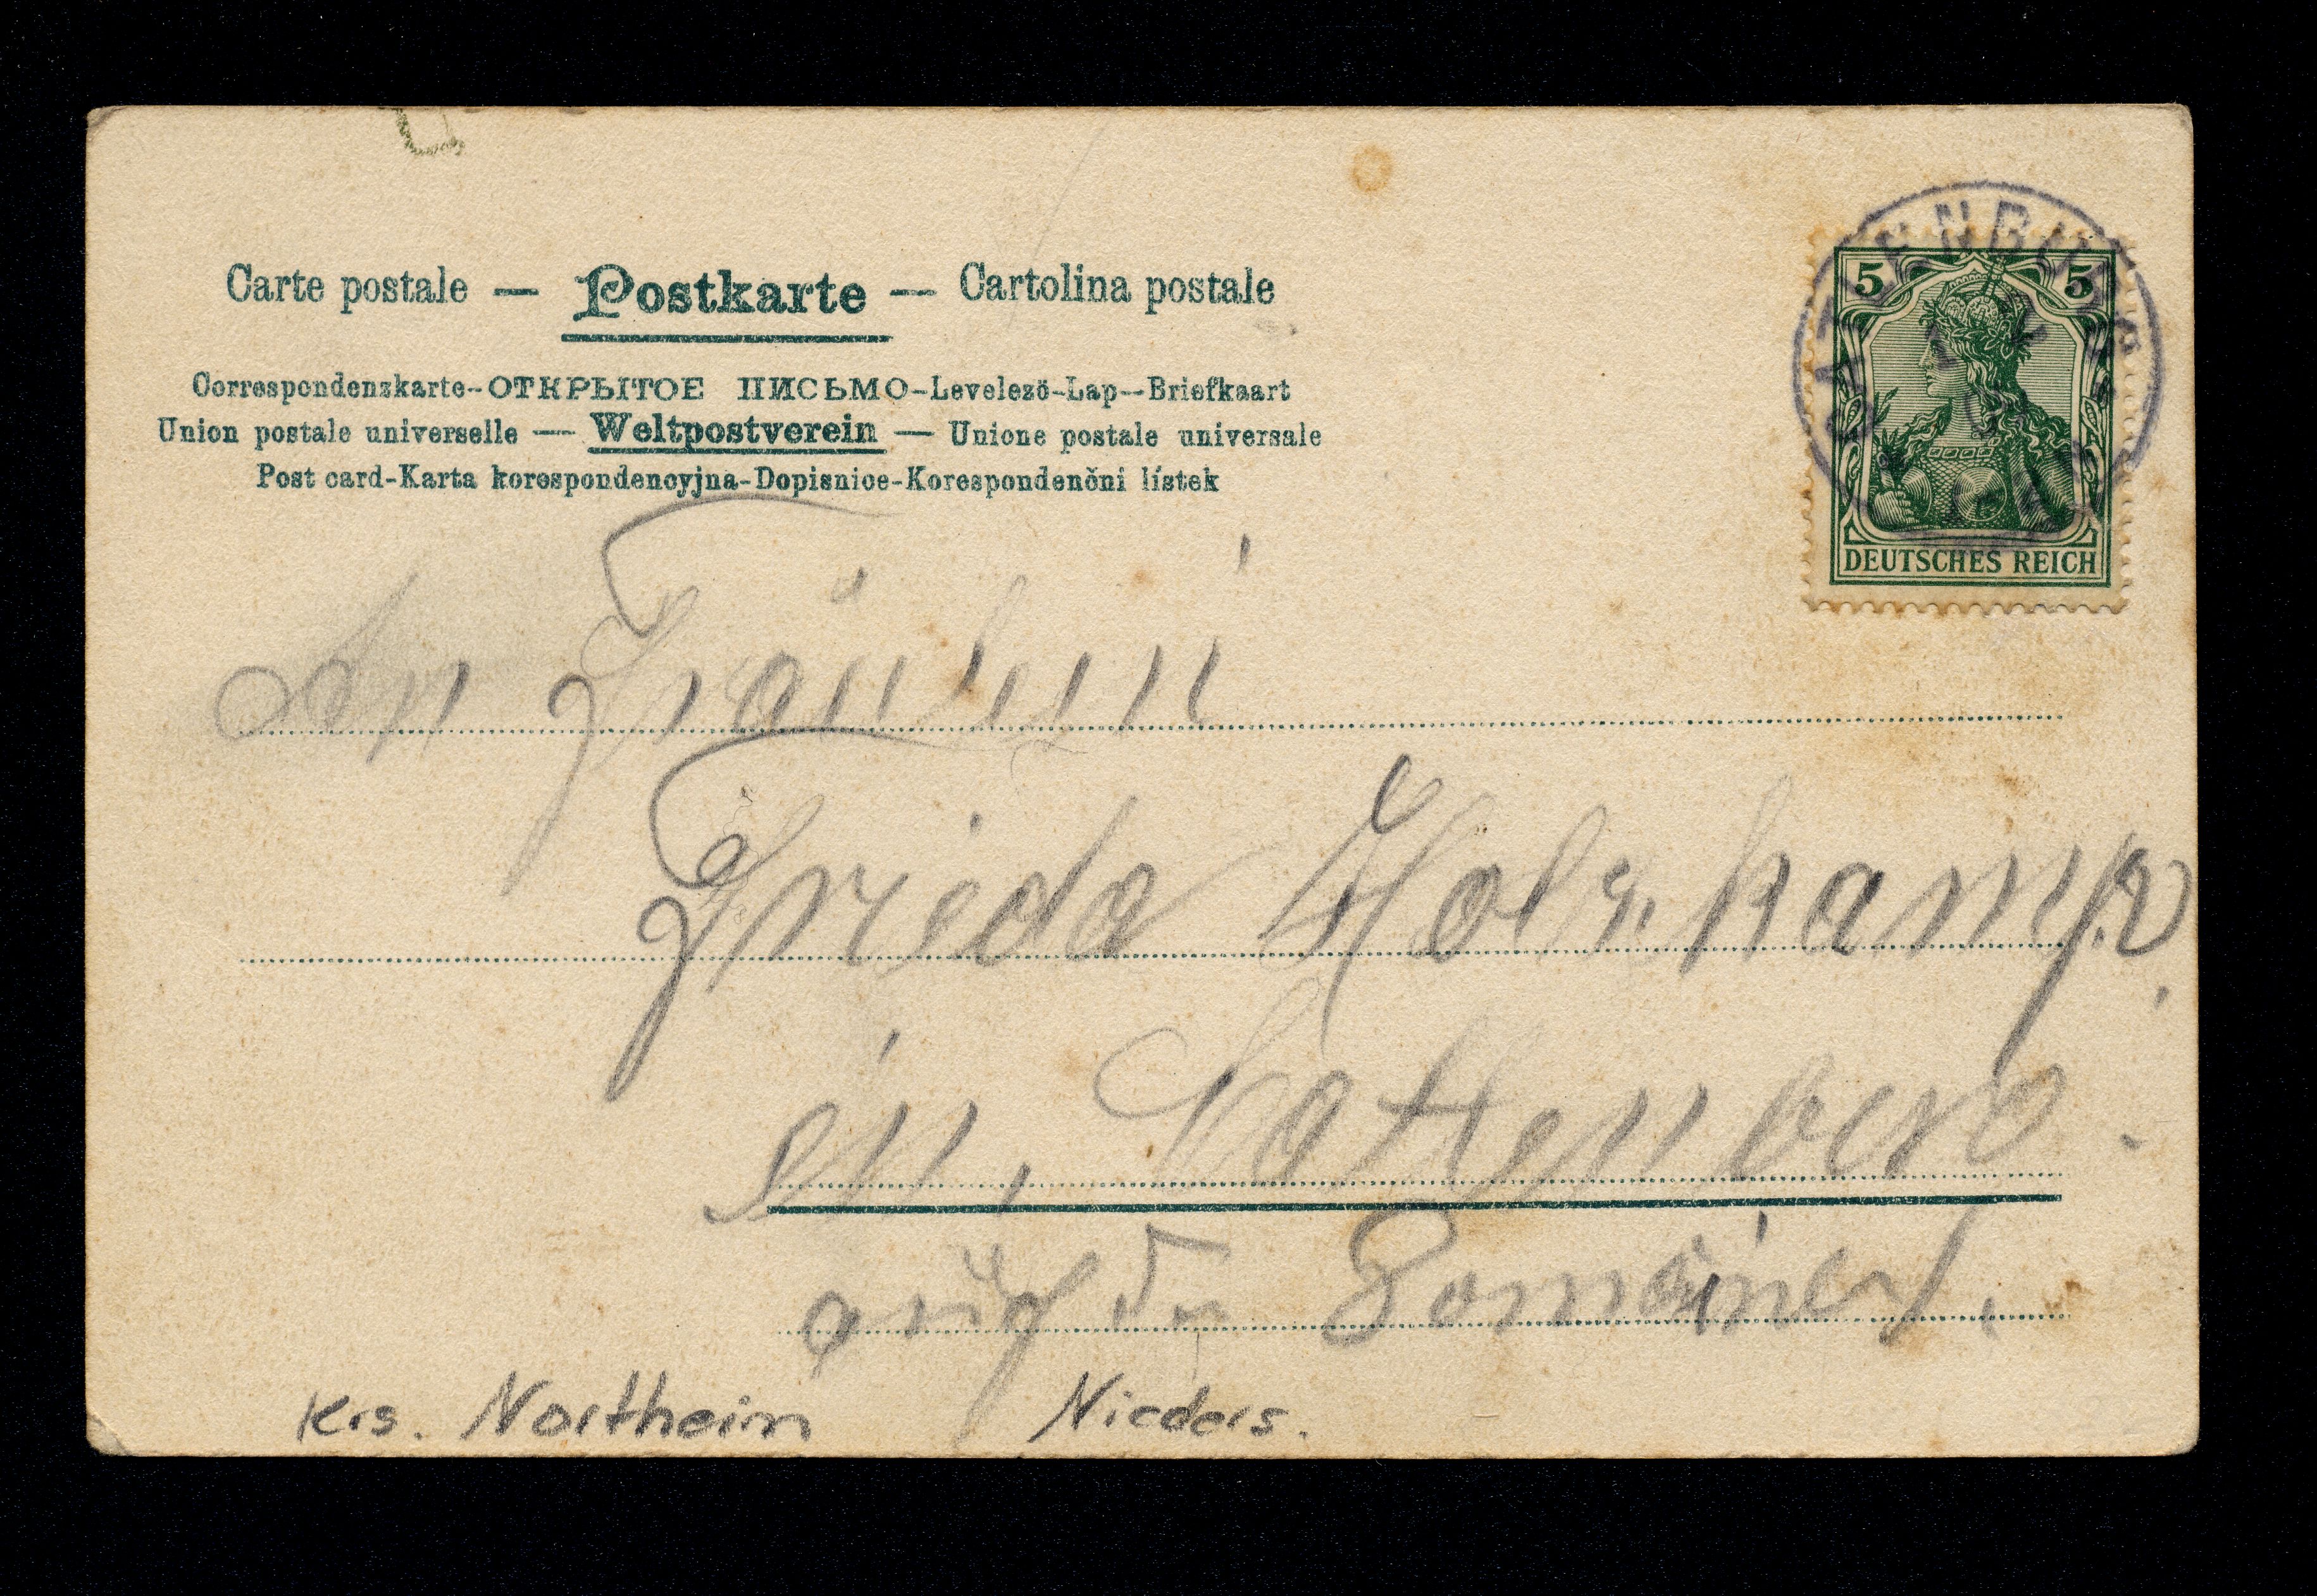 Carte postale — Postkarte — Cartolina postale
Correspondenzkarte-ОТКРЫТОЕ ПИСЬМО-Levelező-Lap--Briefkaart
Union postale universelle — Weltpostverein — Unione postale universale
Post card-Karta korespondencyjna-Dopisnice-Korespondenční lístek
CATLENBURG
5 5
DEUTSCHES REICH
An Fräulein
Frieda Holzkamp
in, Catlenburg.
auf der Domäne.
Krs. Northeim Nieders.